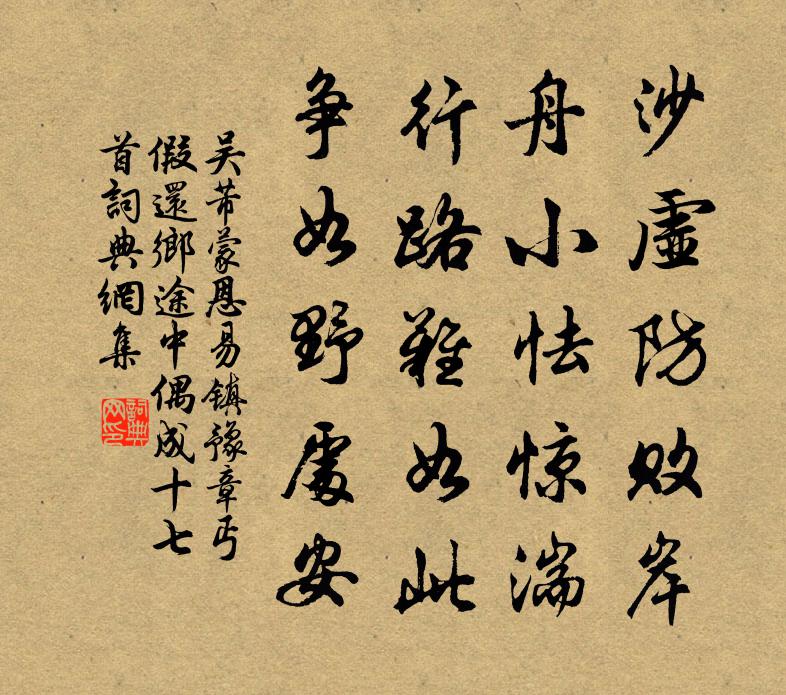 沙虛防败岸
舟小怯惊湍
行路難如此
争如野處安
吴芾蒙恩易鎮豫章丐
假還鄉途中偶成十七
首詞典網集
詞典
网印